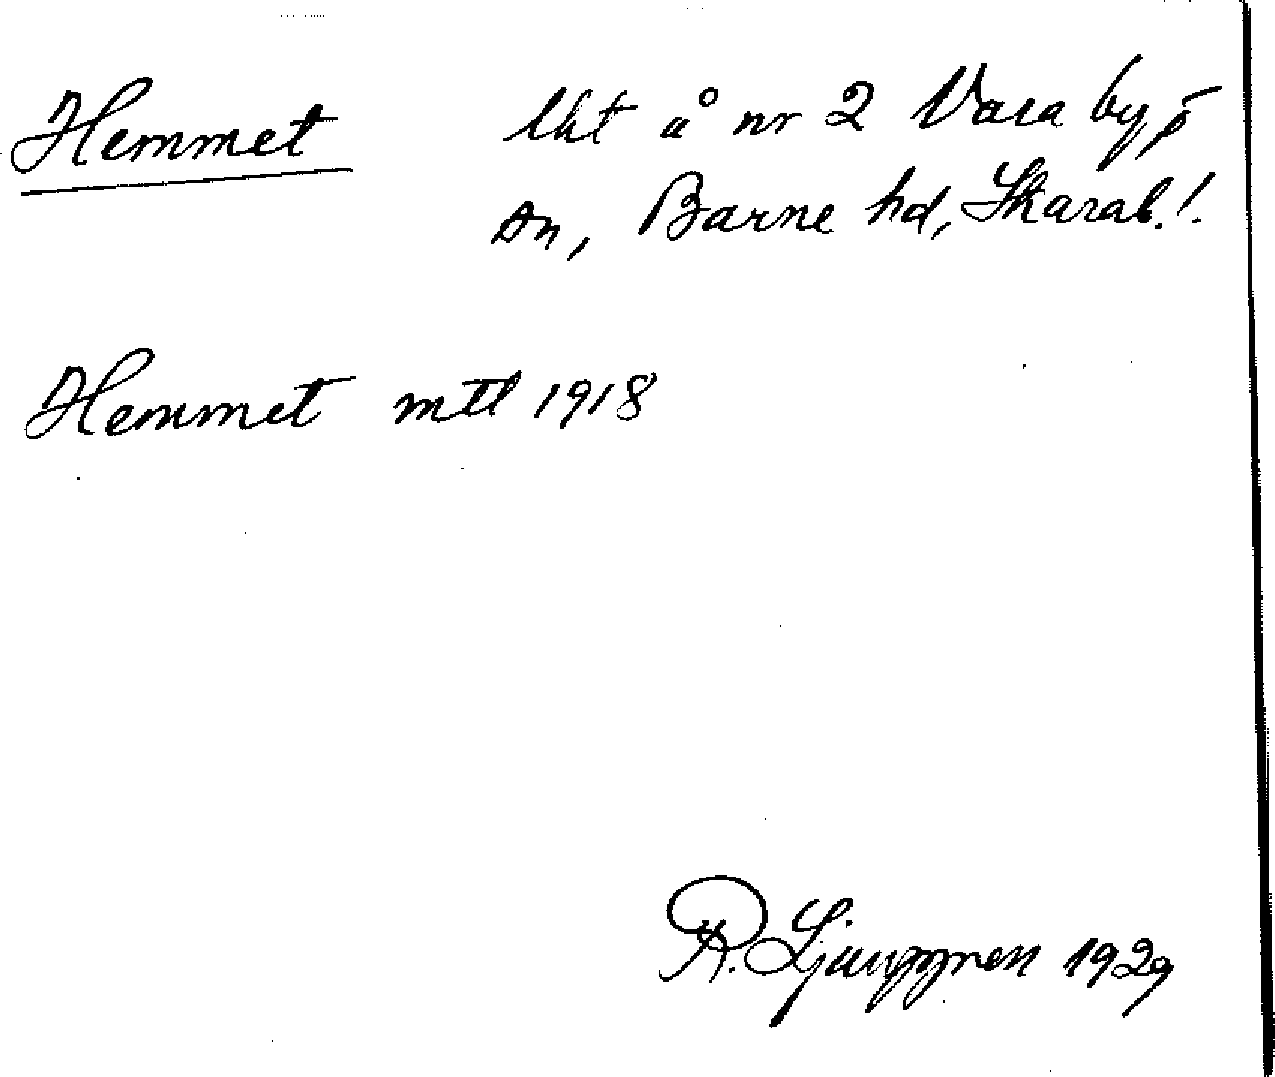 Hemmet lht å nr 2 Vara by,
sn, Barne hd, Skarab. l.
Hemmet mtl 1918
R. Ljunggren 1929